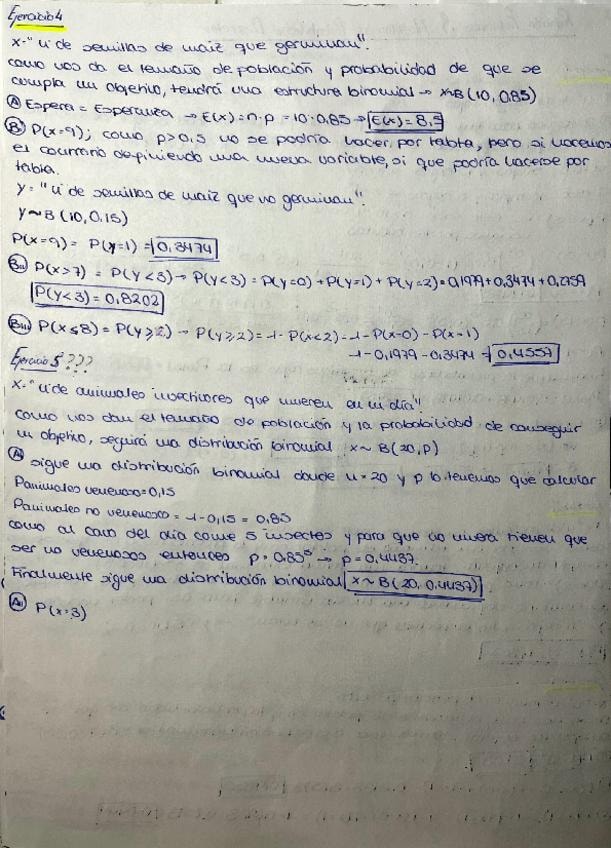 Ejercicio 4
X="nº de semillas de maíz que germinan".
como nos da el tamaño de población y probabilidad de que se
cumpla un objetivo, tendrá una estructura binomial → X~B(10, 0,85)
A) Espera = Esperanza → E(x) = n·p = 10·0,85 → E(x) = 8,5
Bi) P(x=9); como p>0,5 no se podría hacer por tabla, pero si hacemos
el contrario definiendo una nueva variable, si que podría hacerse por
tabla.
Y = "nº de semillas de maíz que no germinan".
Y~B(10, 0,15)
P(x=9) = P(y=1) = 0,3474
Bii) P(x>7) = P(Y<3) → P(Y<3) = P(y=0) + P(y=1) + P(y=2) = 0,1979 + 0,3474 + 0,2759
P(Y<3) = 0,8202
Biii) P(x≤8) = P(Y≥2) → P(y≥2) = 1 - P(x<2) = 1 - P(x=0) - P(x=1)
1 - 0,1979 - 0,3474 = 0,4557
Ejercicio 5???
X="nº de animales insectívores que mueren en un día"
como nos dan el tamaño de población y la probabilidad de conseguir
un objetivo, seguirá una distribución binomial X~B(20, p)
A) sigue una distribución binomial donde n=20 y p lo tenemos que calcular
Panimales venenoso=0,15
Panimales no venenoso = 1-0,15 = 0,85
como al cabo del día come 5 insectos y para que no muera tienen que
ser no venenosos entonces p = 0.85⁵ → p = 0,4437.
Finalmente sigue una distribución binomial X~B(20, 0,4437)
Ai) P(x=3)